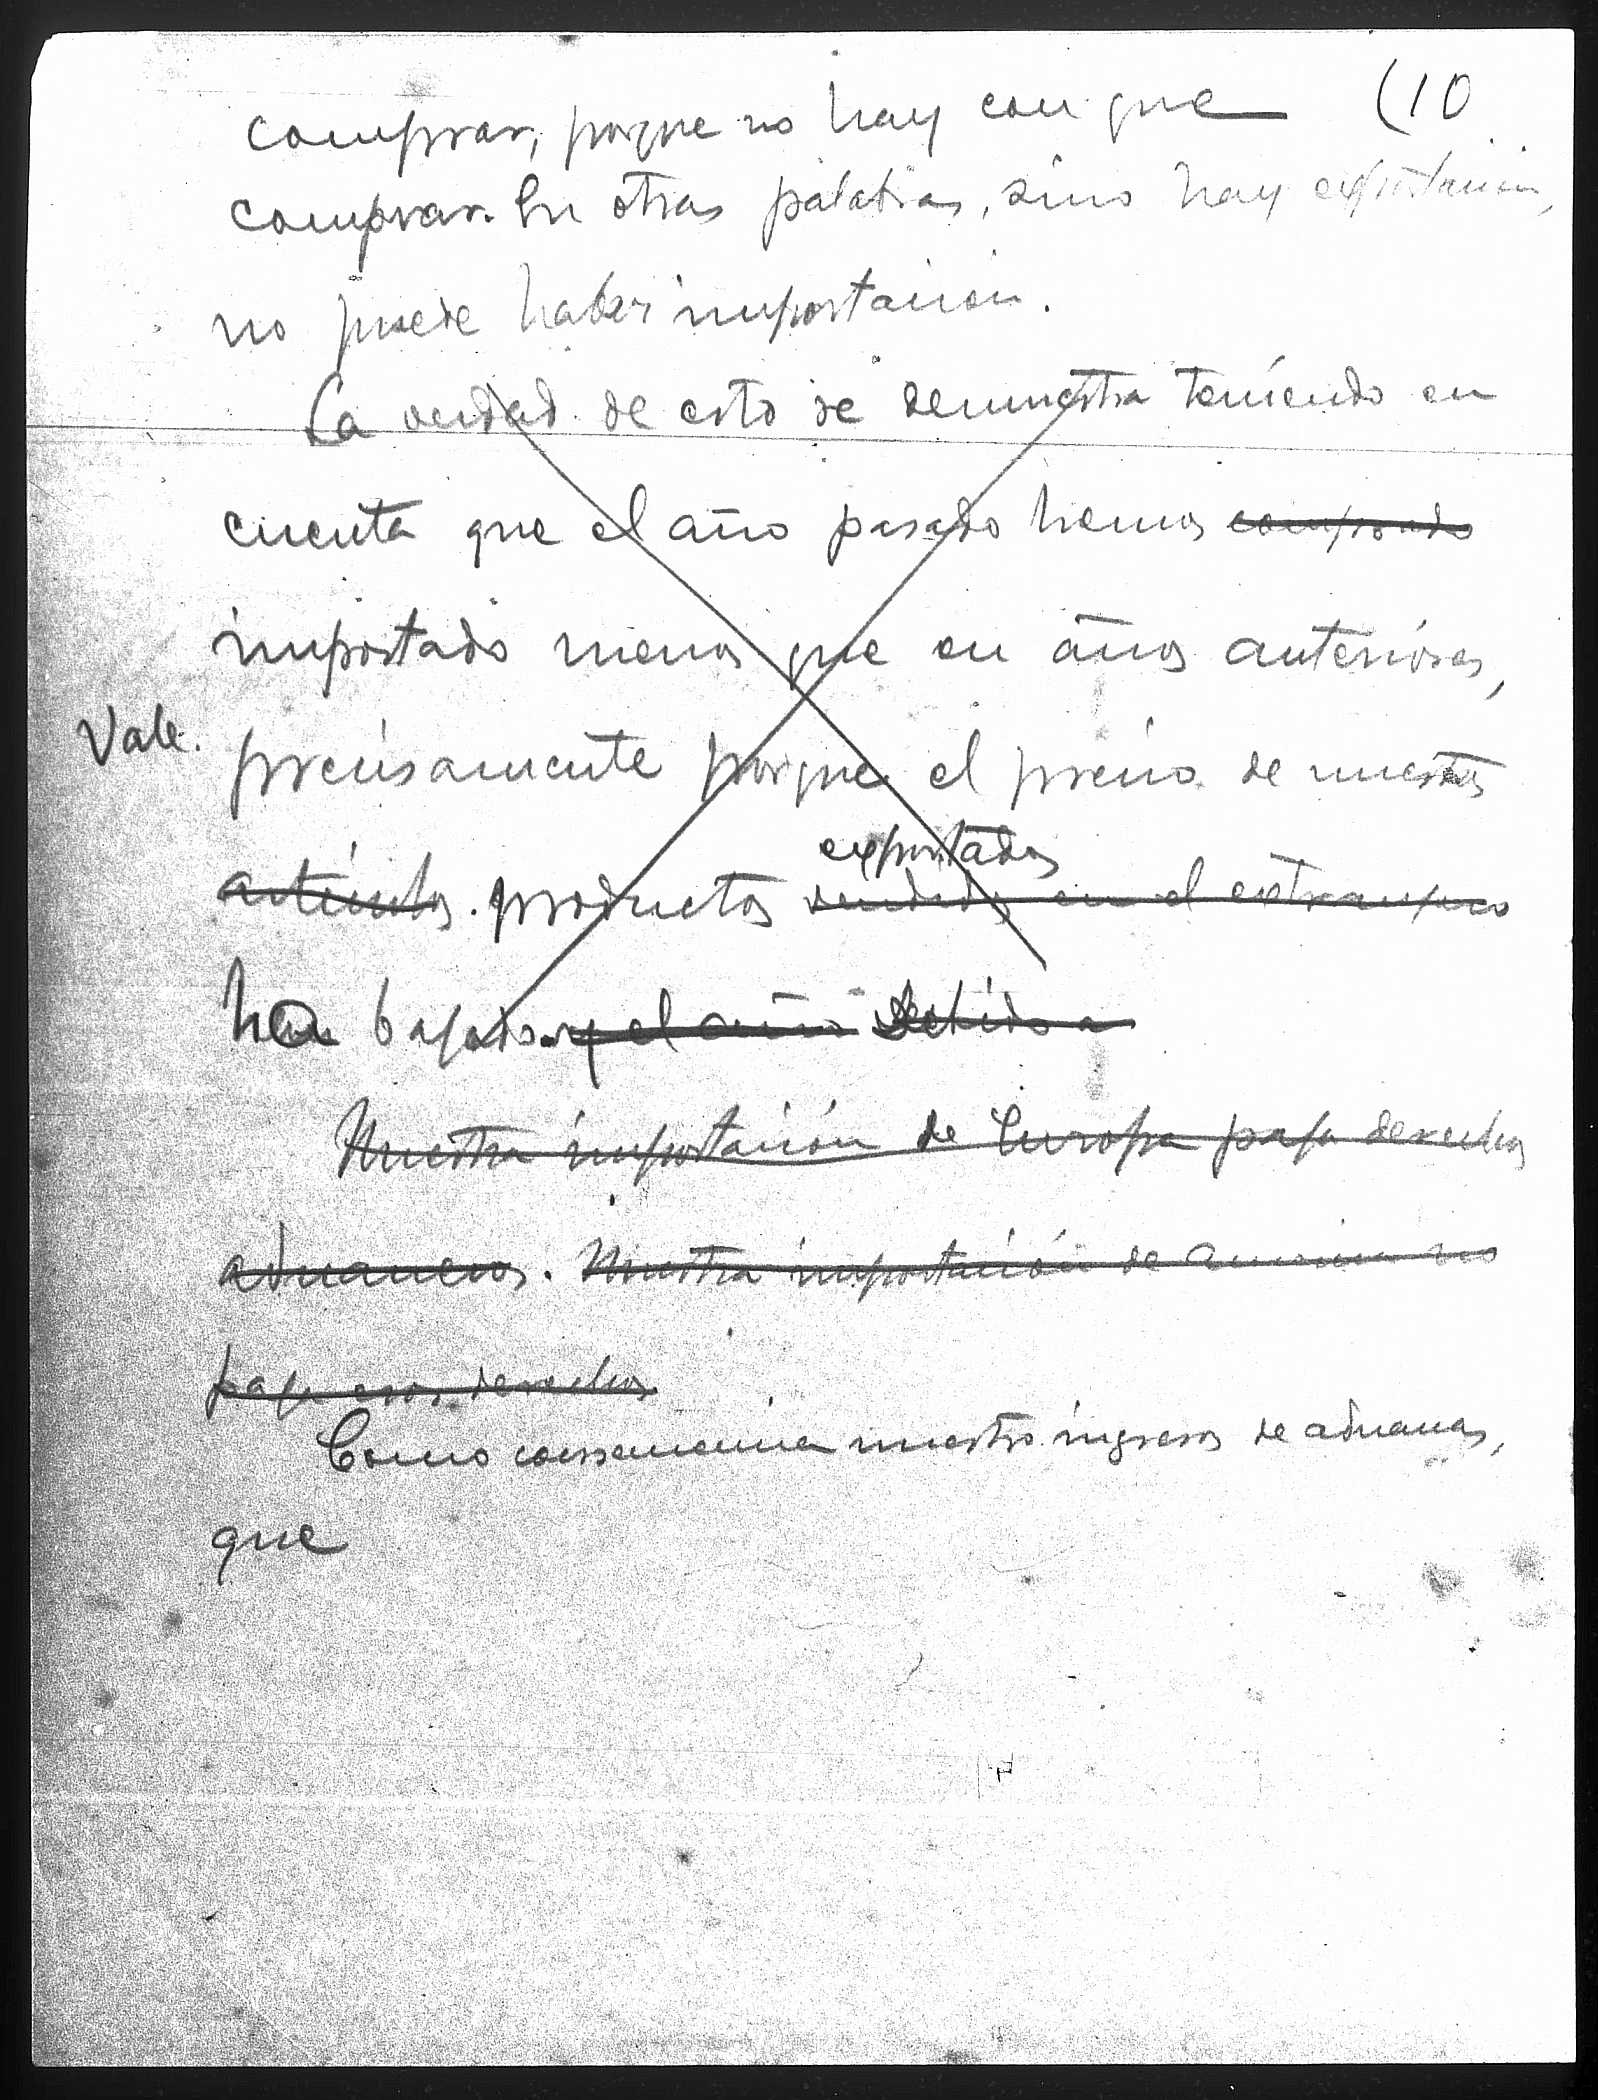 (10
comprar, porque no hay con que
comprar. En otras palabras, sino hay exportación,
no puede haber importación.
La verdad de esto se demuestra teniendo en
cuenta que el año pasado hemos comprado
importado menos que en años anteriores,
Vale.
precisamente porque el precio de nuestros
exportados
artículos. productos vendidos en el extranjero
ha bajado. y el año debido a
Nuestra importación de Europa paga derechos
aduaneros. Nuestra importación de America no
paga esos derechos
Como consecuencia nuestro ingresos de aduanas,
que